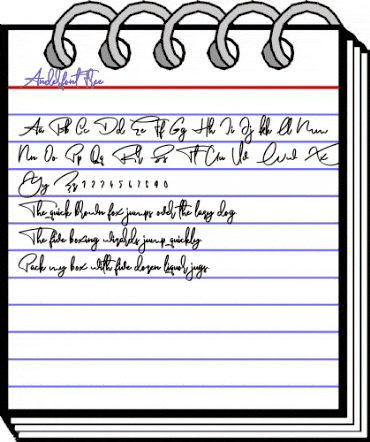 Anderfont Free
Aa Bb Cc Dd Ee Ff Gg Hh Ii Jj Kk Ll Mm
Nn Oo Pp Qq Rr Ss Tt Uu Vv Ww Xx
Yy Zz 1 2 3 4 5 6 7 8 9 0
The quick brown fox jumps over the lazy dog
The five boxing wizards jump quickly
Pack my box with five dozen liquor jugs